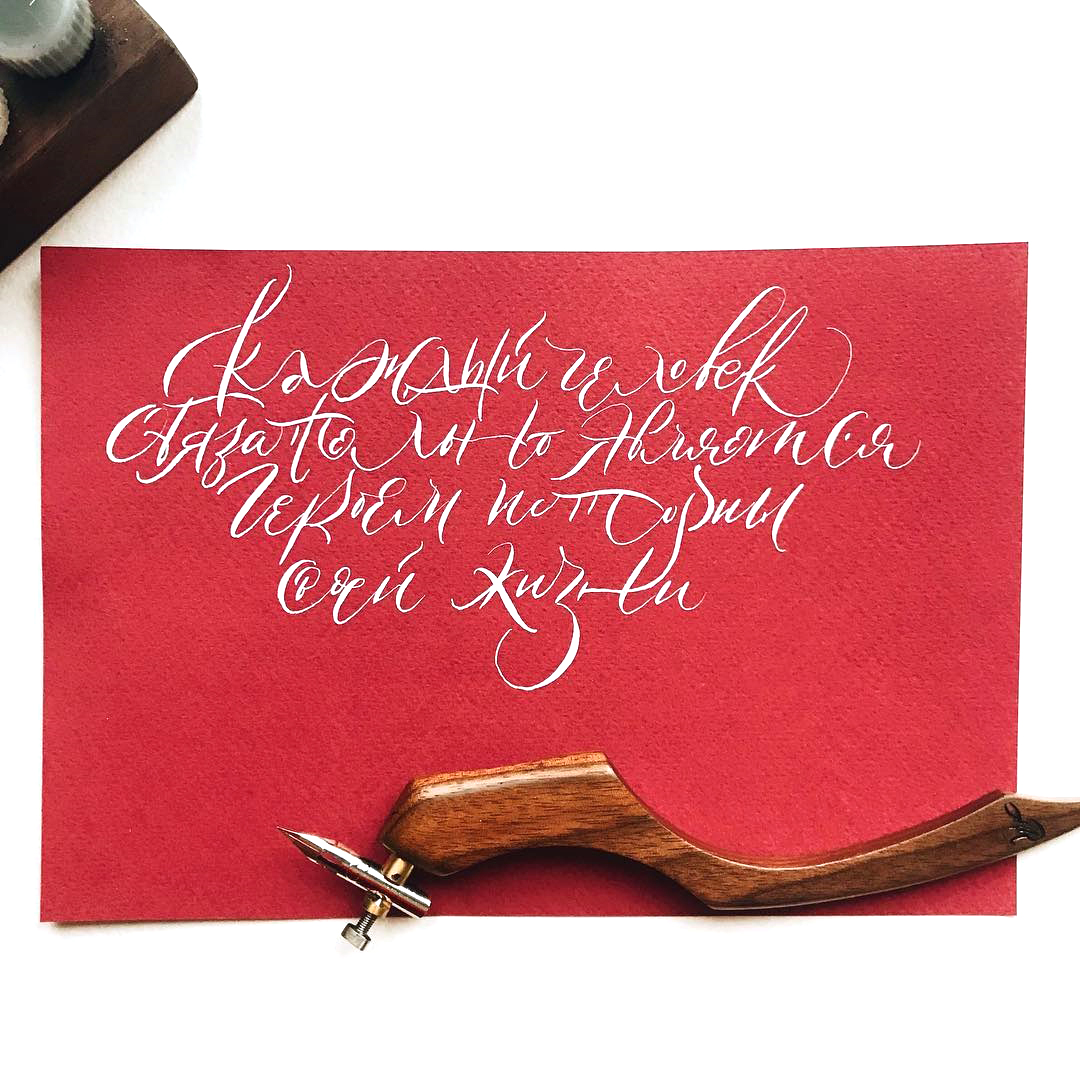 каждый человек
обязательно является
героем истории
своей жизни